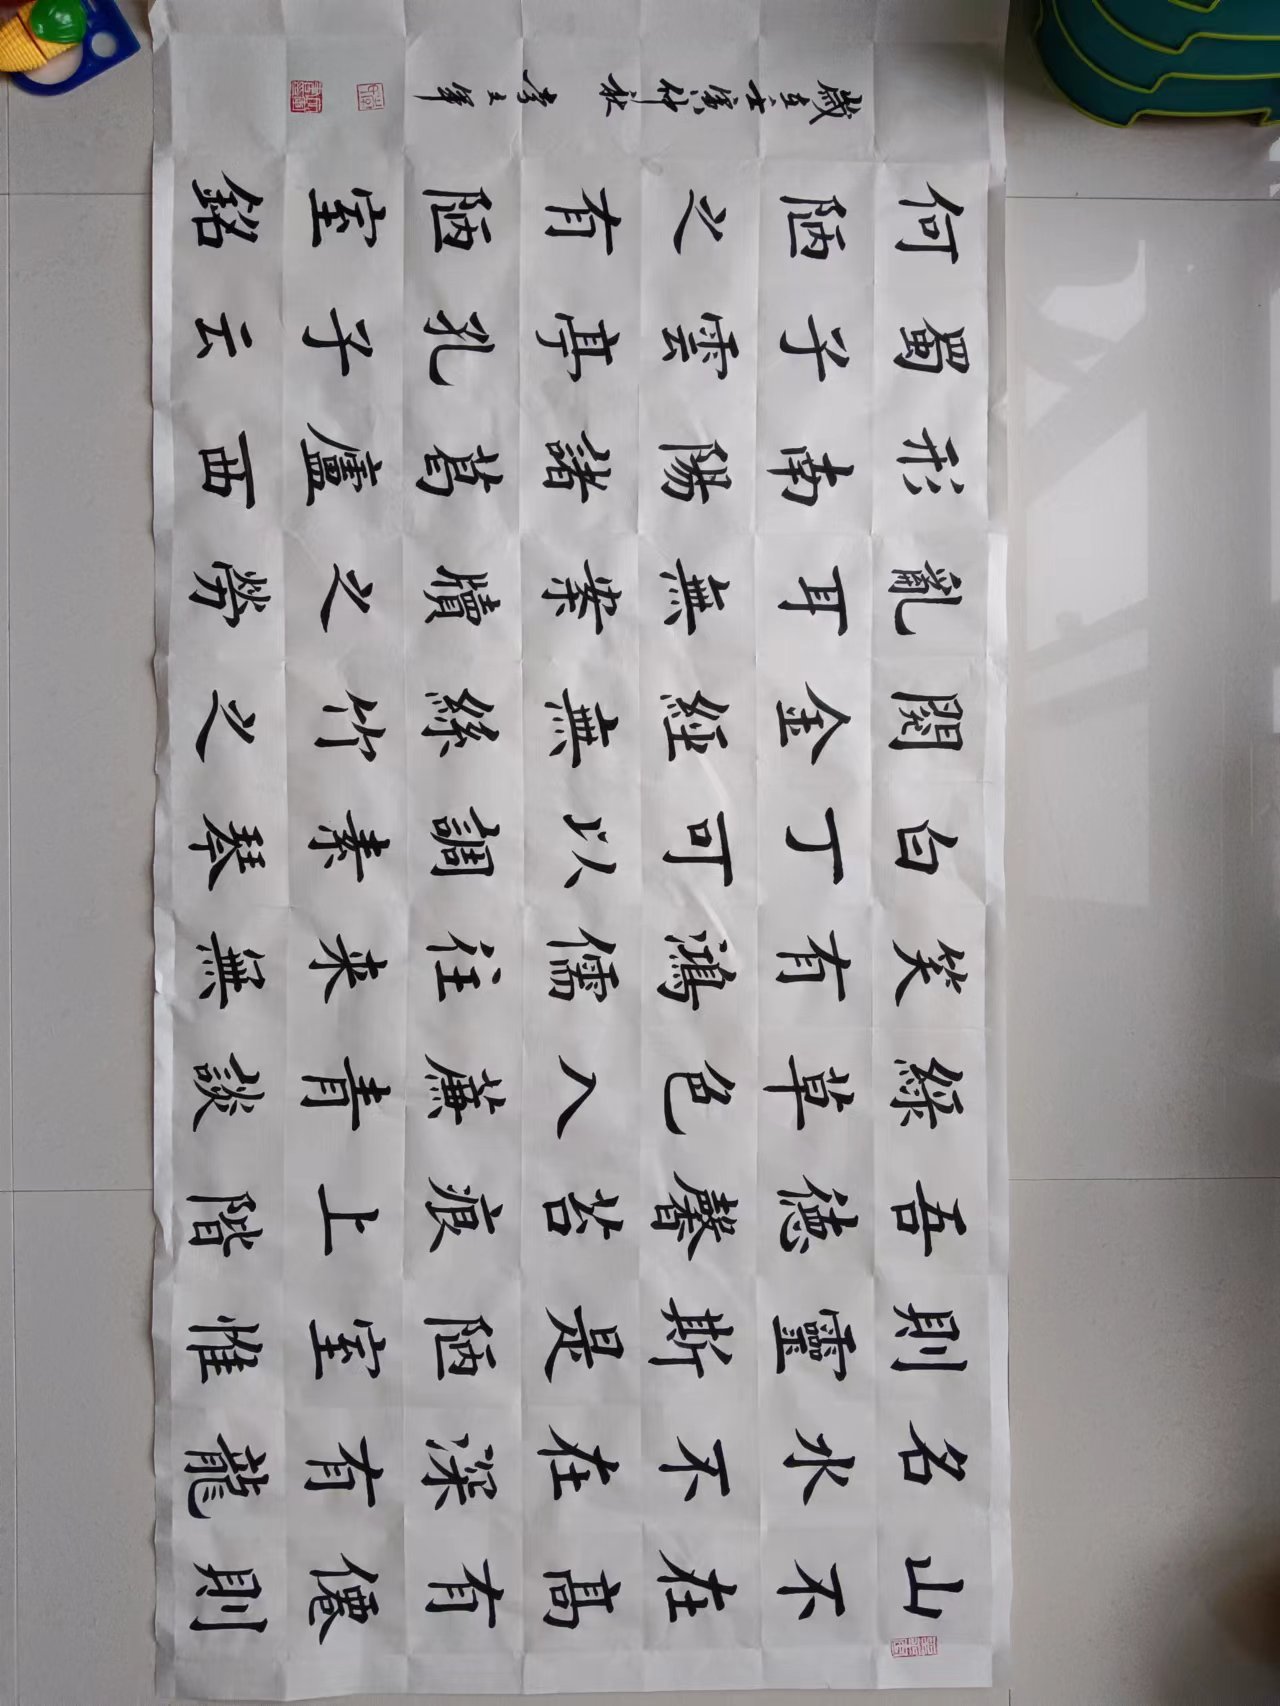 山不在高有僊則
名水不在深有龍
則靈斯是陋室惟
吾德馨苔痕上階
綠草色入簾青談
笑有鴻儒往来無
白丁可以調素琴
閱金經無絲竹之
亂耳無案牘之勞
形南陽諸葛廬西
蜀子雲亭孔子云
何陋之有陋室銘
歲在壬寅仲秋